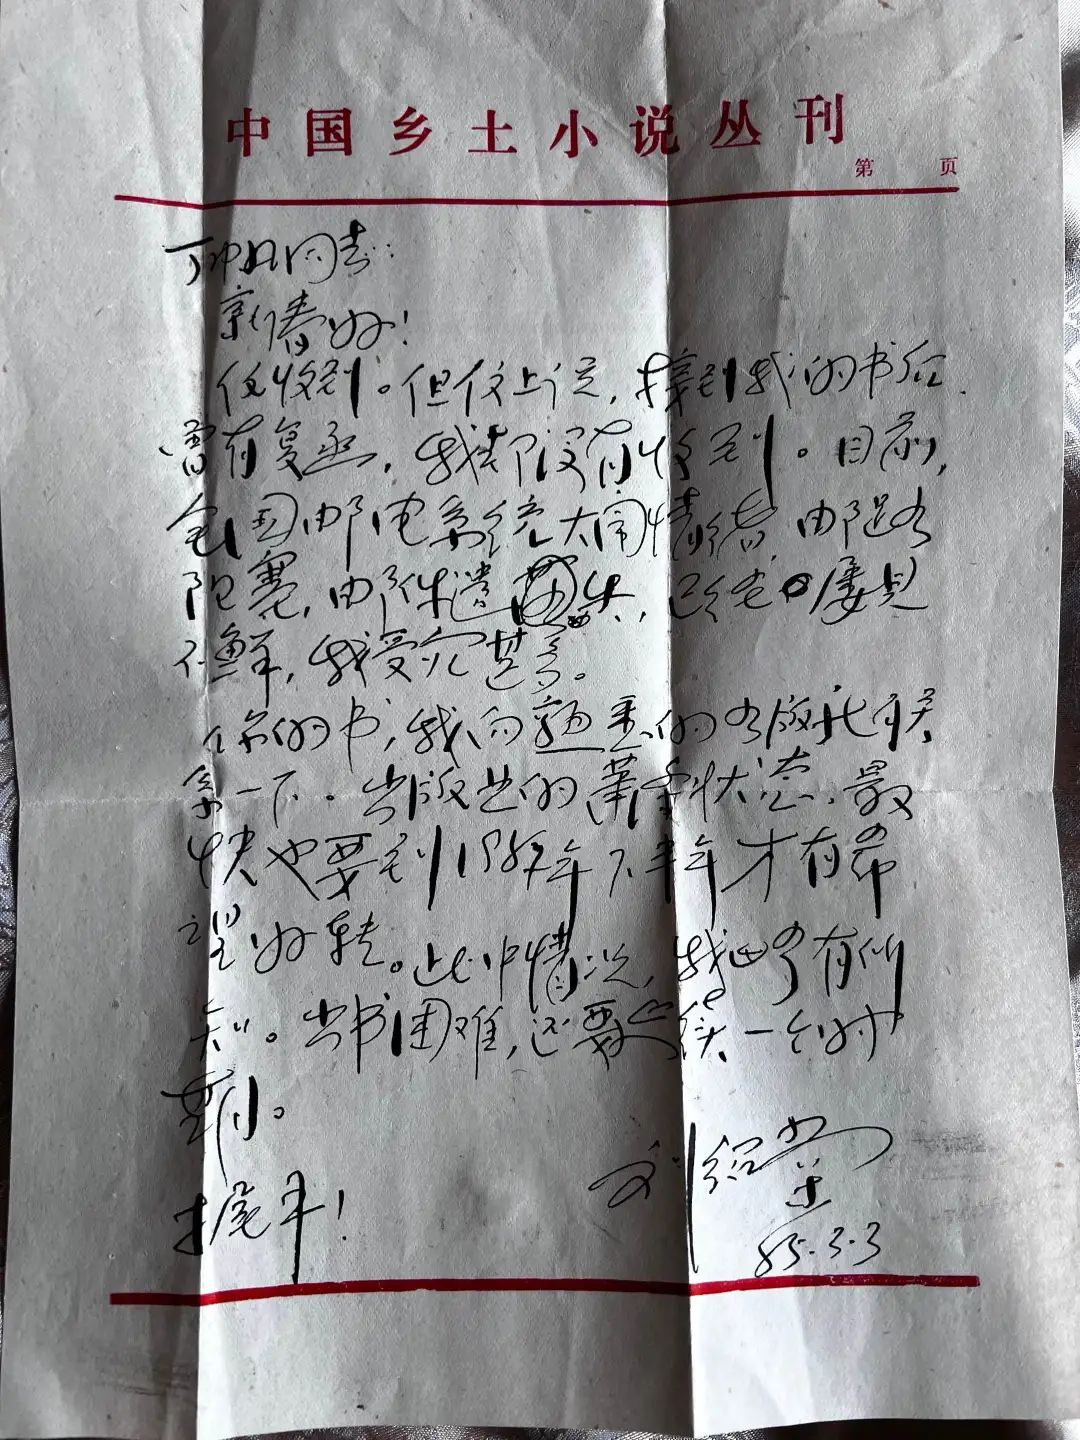 中国乡土小说丛刊
第 页
同志:
新春好!
信收到。但信上说,接到我的书后
曾有复函,我都没有收到。目前,
全国邮电系统大闹情绪,邮路
阻塞,邮件遗失,已经屡见
不鲜,我受灾甚多。
你的书,我向熟悉的出版社联
系一下。出版业的萧条状态,最
快也要到1987年下半年才有希
望好转。此中情况,我也略有所
知。出书困难,还要延续一个时
期。
握手!
刘绍棠
85.3.3